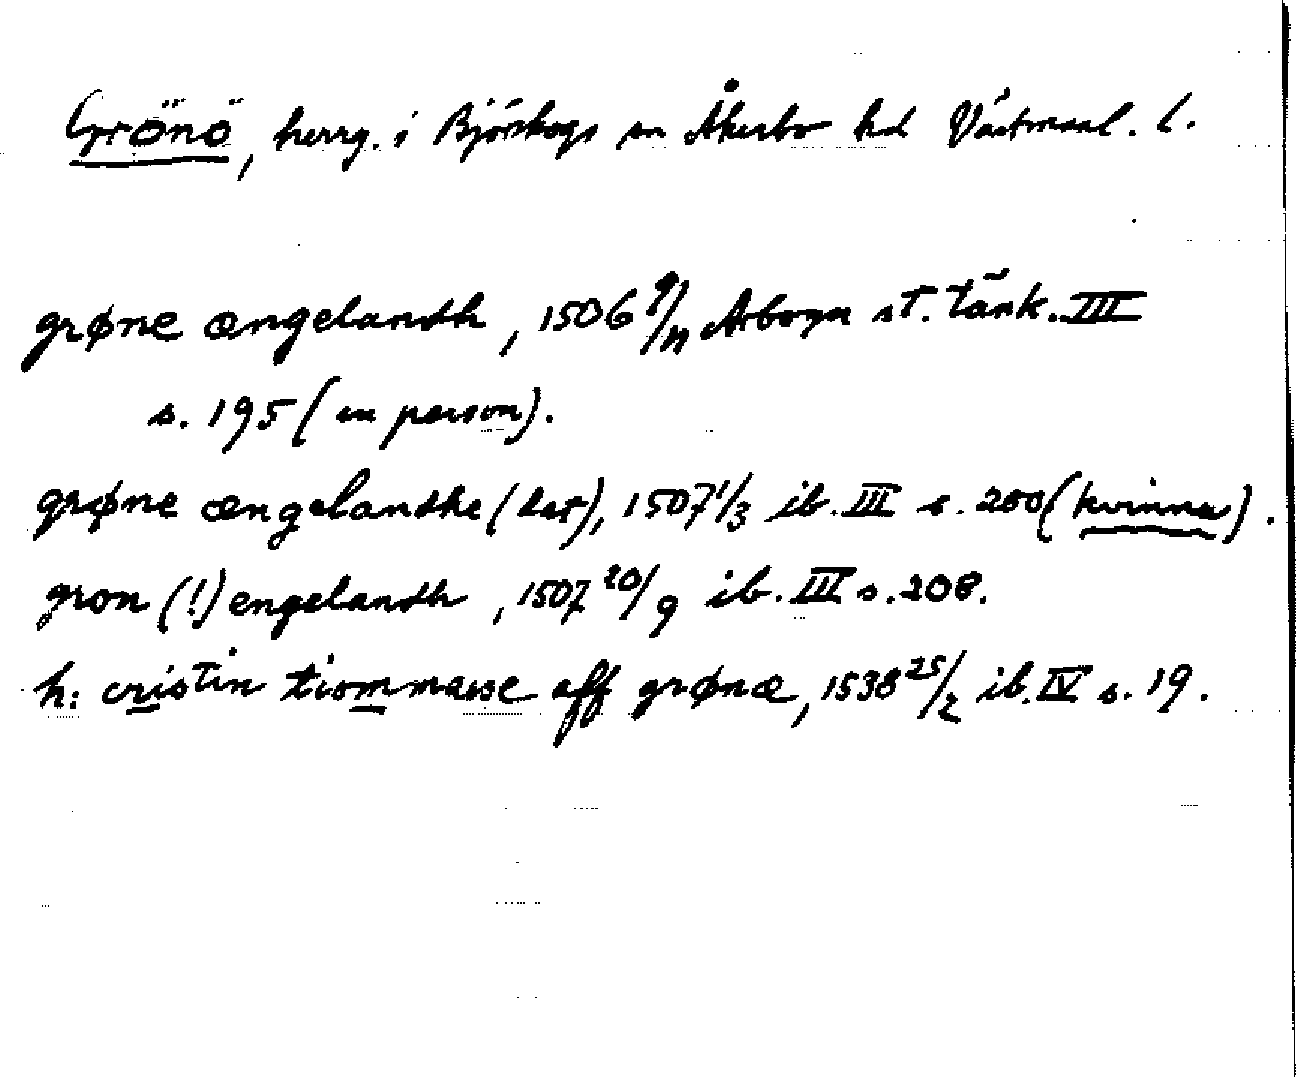 Grönö, herrg. i Björskogs sn Åkerbo hd Västmanl. l.
grøne ængelandh, 1506 9/11 Arboga st. tänk. III
s. 195 (en person).
grøne ængelandhe (dat), 1507 1/3 ib. III s. 200 (kvinna).
gron (!) engelandh, 1507 20/9 ib. III s. 208.
h: cristin tiommasse aff grønæ, 1538 25/2 ib. IV s. 19.